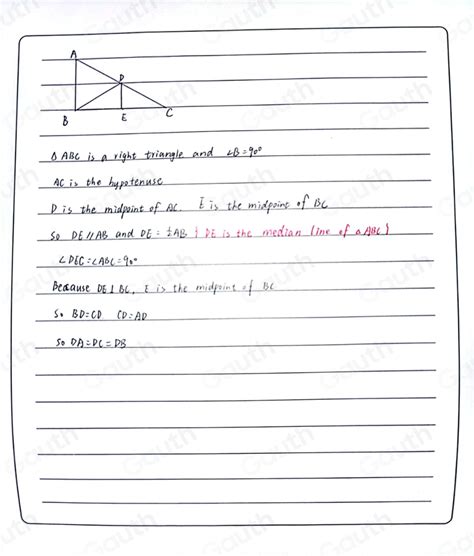 A
D
B E C
Δ ABC is a right triangle and ∠B=90°
AC is the hypotenuse
D is the midpoint of AC. E is the midpoint of BC
So DE∥AB and DE=½AB { DE is the median line of a ABC }
∠DEC=∠ABC=90°
Because DE⊥BC, E is the midpoint of BC
So BD=CD CD=AD
So DA=DC=DB
Gauth